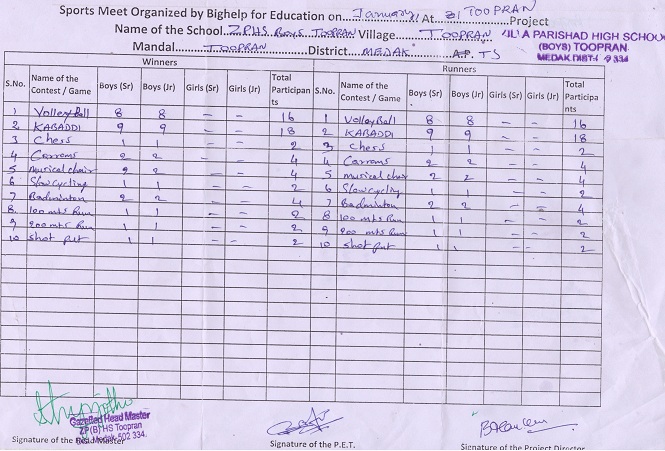 Sports Meet Organized by Bighelp for Education on January At 31 TOOPRAN Project
Name of the School ZPHS Boys TOOPRAN Village TOOPRAN
A PARISHAD HIGH SCHOOL
(BOYS) TOOPRAN.
MEDAK DIST-
Mandal TOOPRAN District MEDAK A.P. TS
Winners Runners
S.No. Name of the Contest / Game Boys (Sr) Boys (Jr) Girls (Sr) Girls (Jr) Total Participants S.No. Name of the Contest / Game Boys (Sr) Boys (Jr) Girls (Sr) Girls (Jr) Total Participants
1 VolleyBall 8 8 – – 16 1 VolleyBall 8 8 – – 16
2 KABADDI 9 9 – – 18 2 KABADDI 9 9 – – 18
3 Chess 1 1 – – 2 3 Chess 1 1 – – 2
4 Carroms 2 2 – – 4 4 Carroms 2 2 – – 4
5 musical chair 2 2 – – 4 5 musical chair 2 2 – – 4
6 Slow cycling 1 1 – – 2 6 Slow cycling 1 1 – – 2
7 Badminton 2 2 – – 4 7 Badminton 2 2 – – 4
8 100 mts Run 1 1 – – 2 8 100 mts Run 1 1 – – 2
9 200 mts Run 1 1 – – 2 9 200 mts Run 1 1 – – 2
10 Shot put 1 1 – – 2 10 Shot put 1 1 – – 2
Gazetted Head Master
ZP(B) HS Toopran
Dist. Medak-502 334.
Signature of the Head Master Signature of the P.E.T. Signature of the Project Director